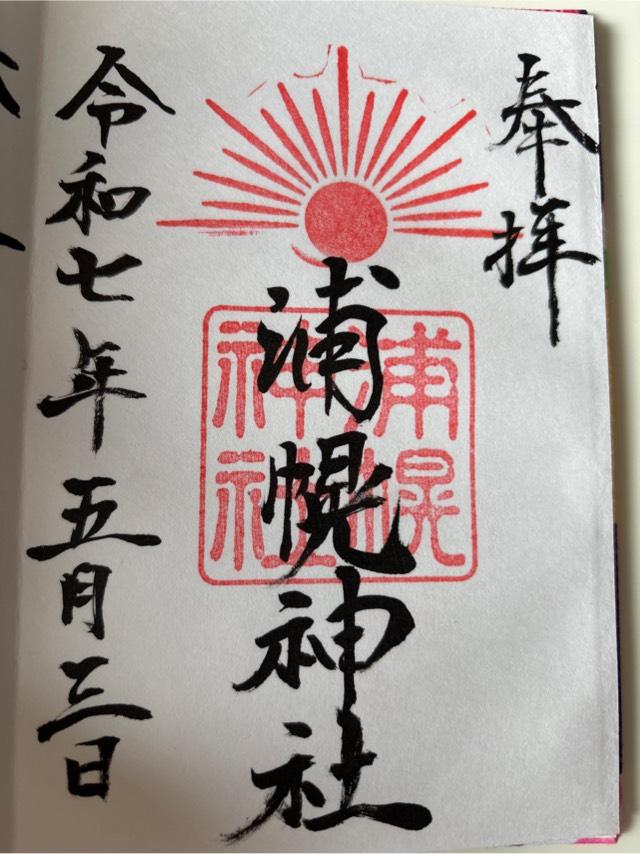 奉拝
浦幌神社
浦幌
神社
令和七年五月三日